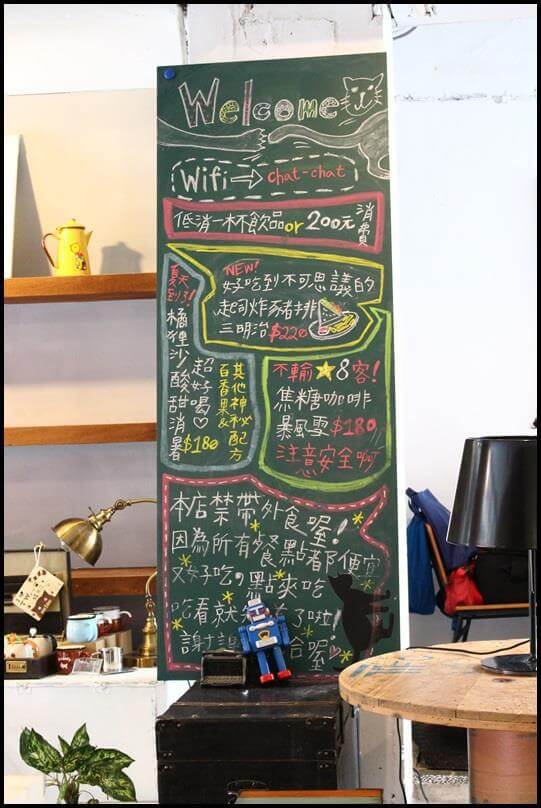 Welcome
Wifi → chat-chat
低消一杯飲品or 200元消費
NEW!
好吃到不可思議的
起司炸豬排
三明治$220
夏天到了!
橘狸沙酸甜消暑
超好喝♡
$180
其他神秘配方
百香果&
不輸★8客!
焦糖咖啡
暴風雪$180
注意安全啊
本店禁帶外食喔!
因為所有餐點都便宜
又好吃,點來吃
吃看就 了啦!
謝 合喔♡